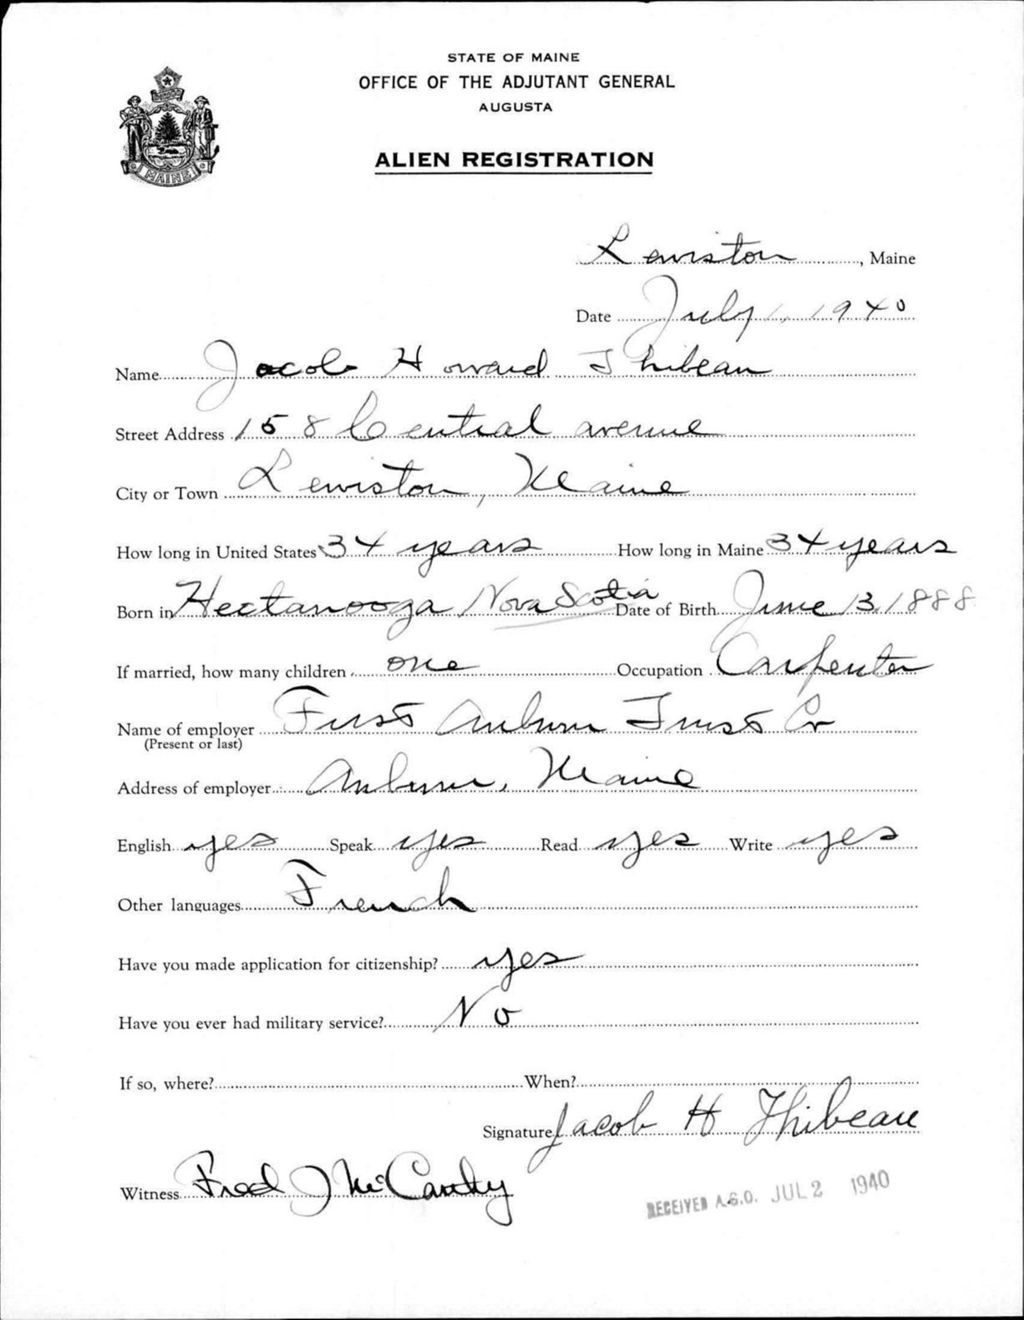 STATE OF MAINE
OFFICE OF THE ADJUTANT GENERAL
AUGUSTA
ALIEN REGISTRATION
MAINE
Lewiston, Maine
Date July 1, 1940
Name Jacob Howard Thibeau
Street Address 158 Central avenue
City or Town Lewiston, Maine
How long in United States 34 years How long in Maine 34 years
Born in Hectanooga Nova Scotia Date of Birth June 13, 1888
If married, how many children one Occupation Carpenter
Name of employer First Auburn Trust Co
(Present or last)
Address of employer Auburn, Maine
English yes Speak yes Read yes Write yes
Other languages French
Have you made application for citizenship? yes
Have you ever had military service? No
If so, where? When?
Signature Jacob H Thibeau
Witness Fred J McCarthy
RECEIVED A.G.O. JUL 2 1940